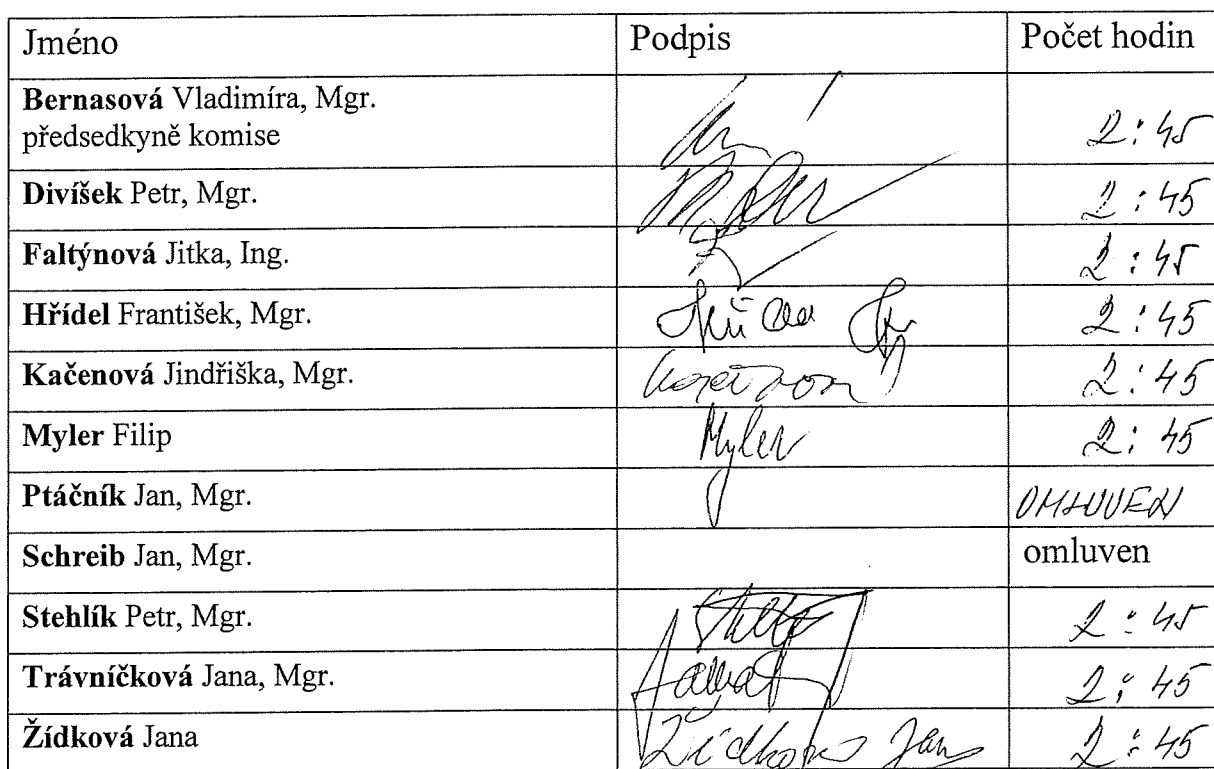 Jméno Podpis Počet hodin
Bernasová Vladimíra, Mgr.
předsedkyně komise 2:45
Divíšek Petr, Mgr. 2:45
Faltýnová Jitka, Ing. 2:45
Hřídel František, Mgr. 2:45
Kačenová Jindřiška, Mgr. 2:45
Myler Filip Myler 2:45
Ptáčník Jan, Mgr. OMLUVEN
Schreib Jan, Mgr. omluven
Stehlík Petr, Mgr. 2:45
Trávníčková Jana, Mgr. 2:45
Žídková Jana Žídková Jana 2:45